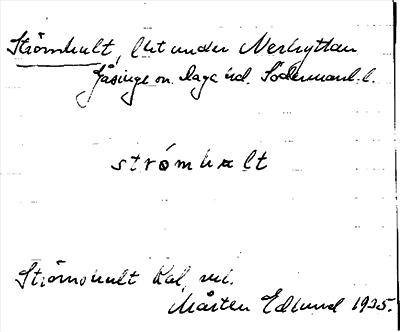 Strömhult, lht under Nerhyttan
Gåsinge o. Daga hd. Södermanl. l.
strómhult
Strömshult Kal, utt.
Mårten Edlund 1935.